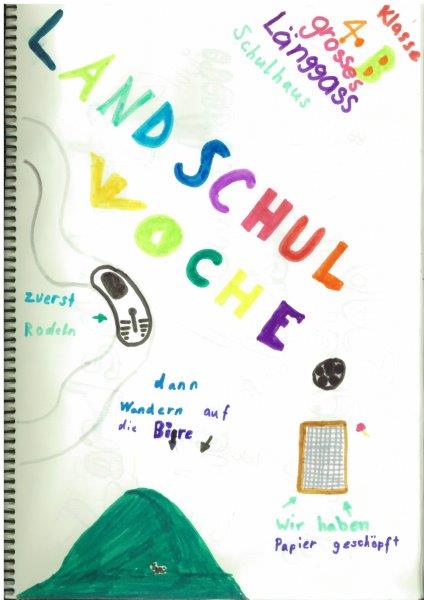 Klasse
4. B
grosses
Länggass
Schulhaus
LANDSCHUL
WOCHE
zuerst
Rodeln
dann
Wandern auf
die
Wir haben
Papier geschöpft